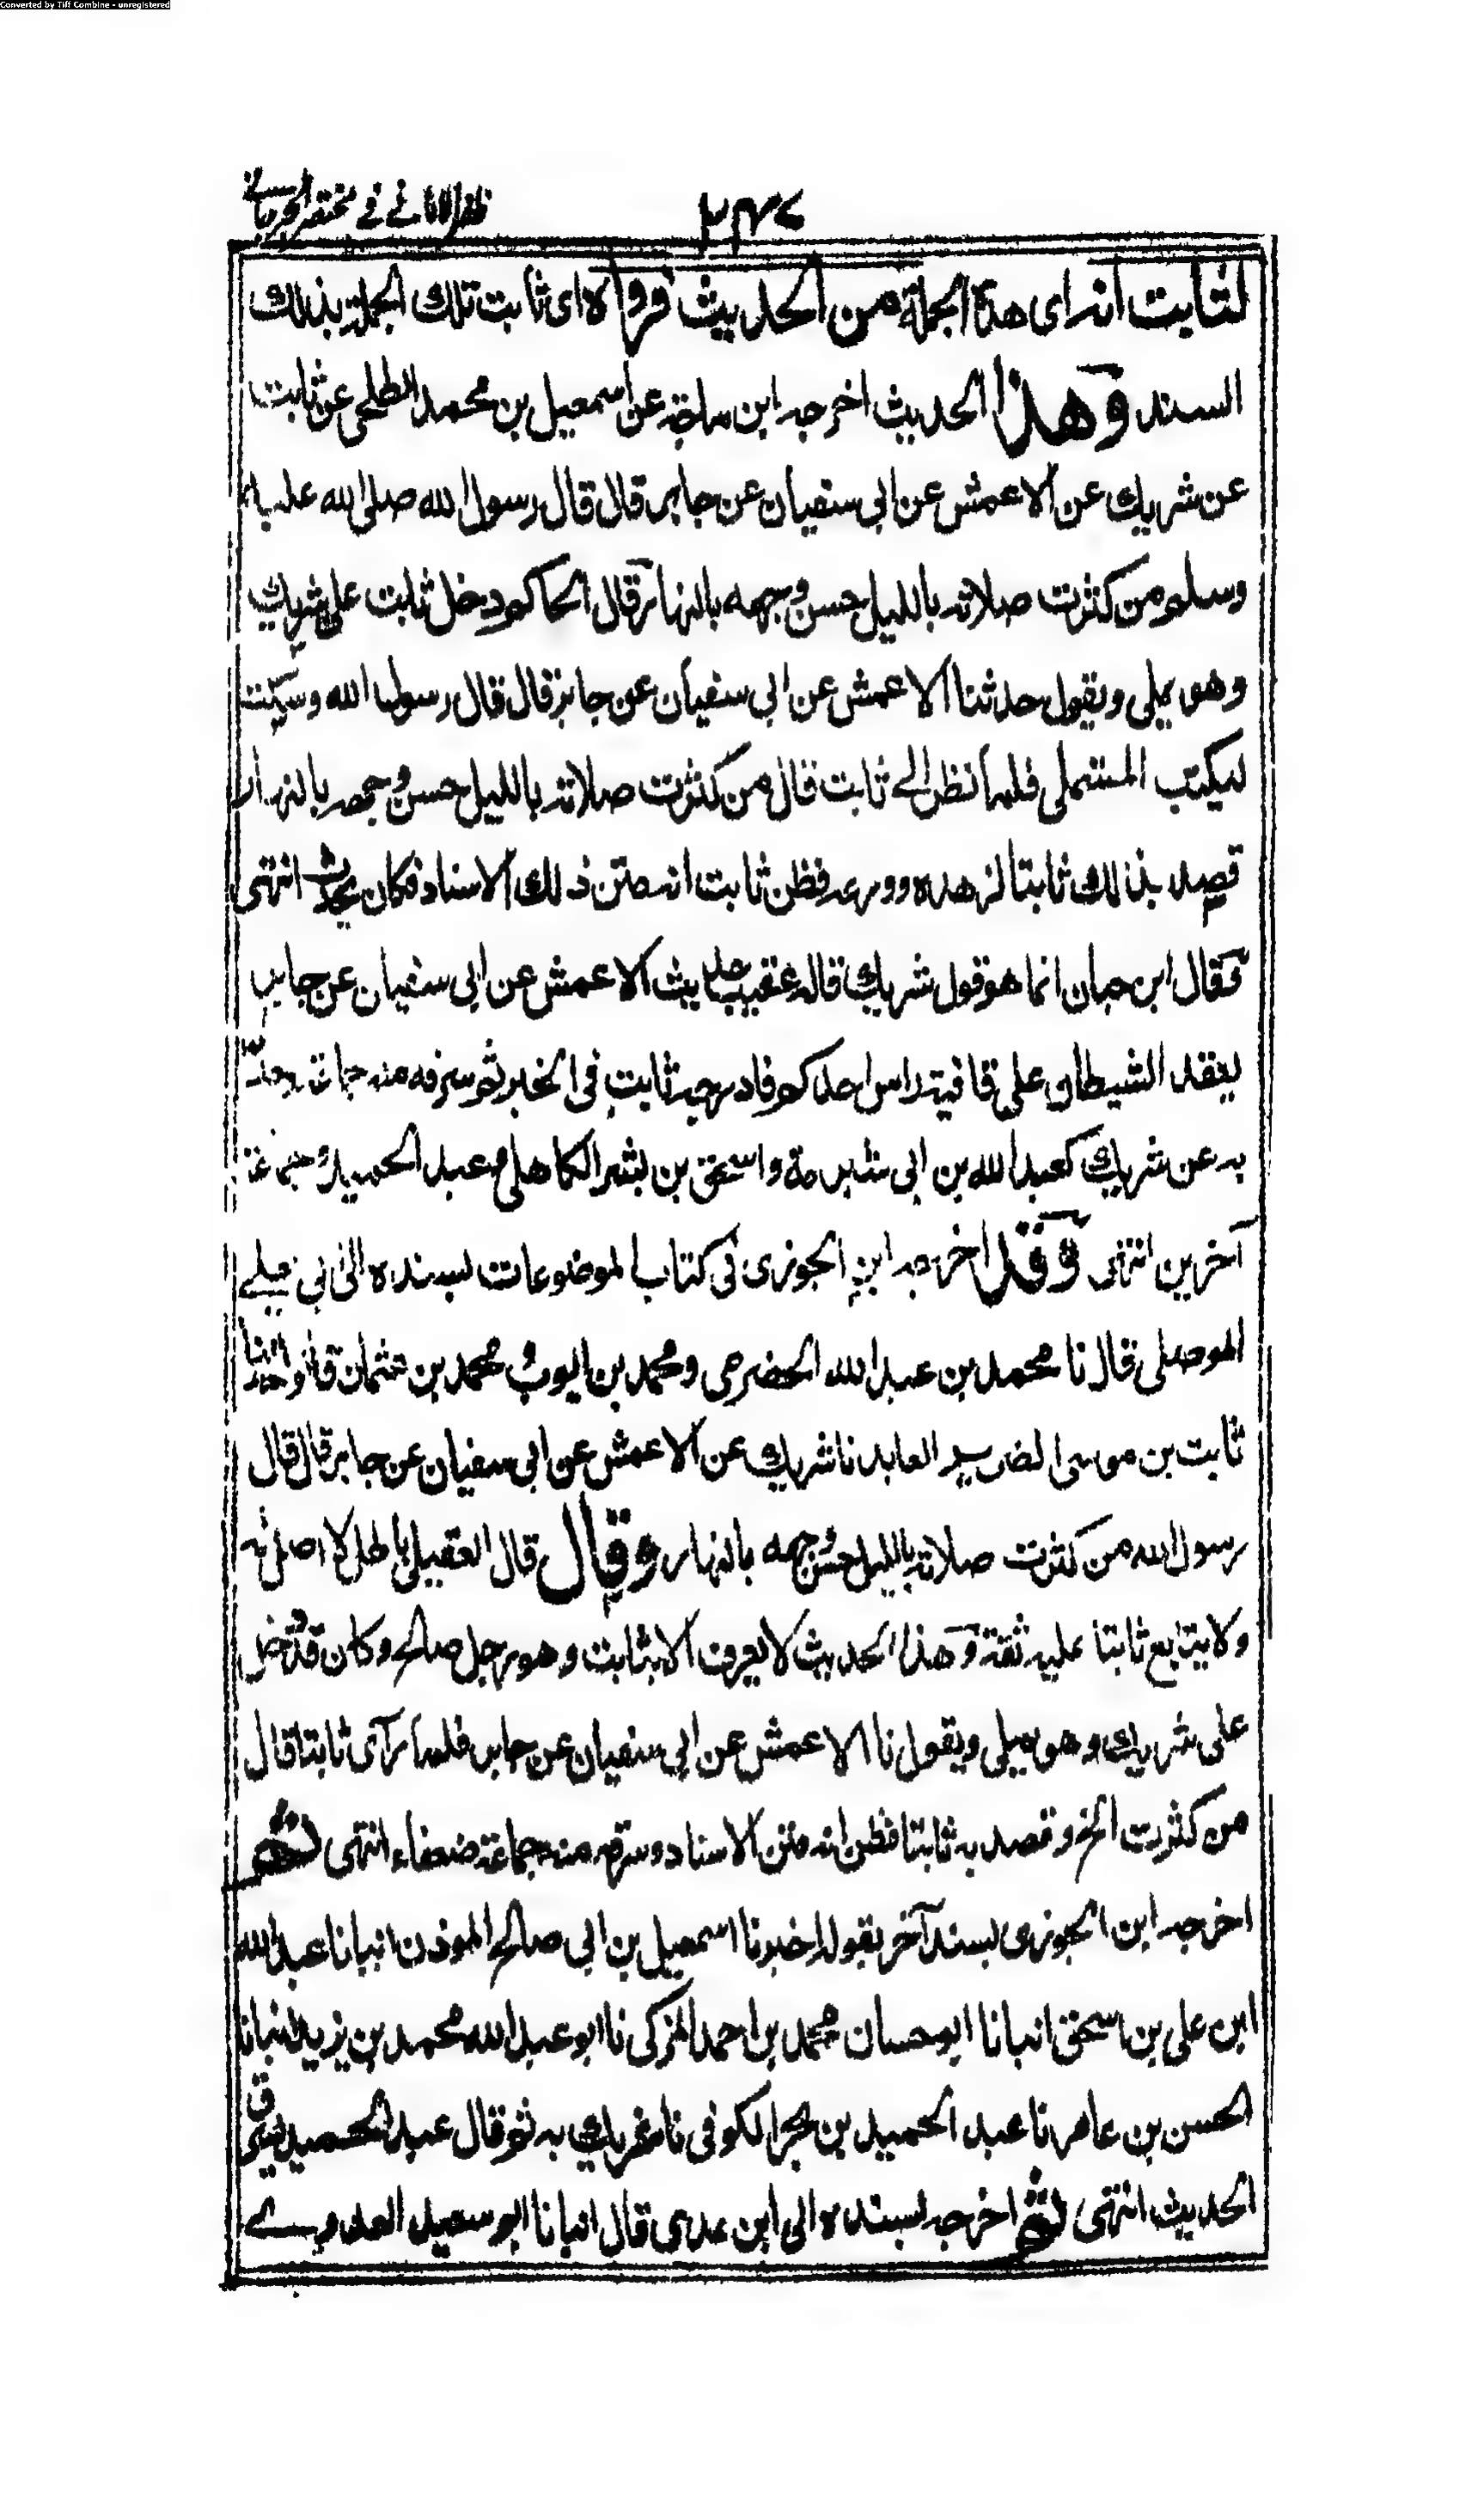 Converted by Tiff Combine - unregistered
ظفر الاماني في مختصر الجرجاني
٢٤٧
لثابت انه اى هذه الجملة من الحديث فرواه اى ثابت تلك الجملة بذلك
السند وهذا الحديث اخرجه ابن ماجة عن اسمعيل بن محمد الطلحى عن ثابت
عن شريك عن الاعمش عن ابى سفيان عن جابر قال قال رسول الله صلى الله عليه
وسلم من كثرت صلاته بالليل حسن وجهه بالنهار قال الحاكم دخل ثابت على شريك
وهو يملى ويقول حدثنا الاعمش عن ابى سفيان عن جابر قال قال رسول الله وسكت
ليكتب المستملى فلما نظر الے ثابت قال من كثرت صلاته بالليل حسن وجهه بالنهار
قصد بذالك ثابتا لزهده وورعه فظن ثابت انه متن ذلك الاسناد فكان يحدث انتهى
وقال ابن حبان انما هو قول شريك قاله عقيب حديث الاعمش عن ابى سفيان عن جابر
يعقد الشيطان على قافية راس احدكم فادرجه ثابت فى الخبر ثم سرقه منه جماعة وحدث
به عن شريك كعبد الله بن ابى شبرمة واسحق بن بشر الكاهلى وعبد الحميد وجماعة
آخرين انتهى وقد اخرجه ابن الجوزى فى كتاب الموضوعات بسنده الى ابى يعلے
الموصلى قال نا محمد بن عبد الله الحضرمى ومحمد بن ايوب ومحمد بن عثمان قالوا حدثنا
ثابت بن موسى الضرير العابد نا شريك عن الاعمش عن ابى سفيان عن جابر قال قال
رسول الله من كثرت صلاته بالليل حسن وجهه بالنهار وقال قال العقيلى باطل لا اصل له
ولا يتابع ثابتا عليه ثقة وهذا الحديث لا يعرف الا بثابت وهو رجل صالح وكان قد دخل
على شريك وهو يملى ويقول نا الاعمش عن ابى سفيان عن جابر فلما رآى ثابتا قال
من كثرت الخ وقصد به ثابتا فظن انه متن الاسناد وسرقه منه جماعة ضعفاء انتهى ثم
اخرجه ابن الجوزى بسند آخر بقوله اخبرنا اسمعيل بن ابى صالح الموذن انبانا عبد الله
ابن على بن اسحق انبانا ابو حسان محمد بن احمد المزكى نا ابو عبد الله محمد بن يزيد انبانا
الحسن بن عامر نا عبد الحميد بن بحر الكوفى نا شريك به ثم قال عبد الحميد يسرق
الحديث انتهى ثم اخرجه بسنده الى ابن عدى قال انبانا ابو سعيد العدوے